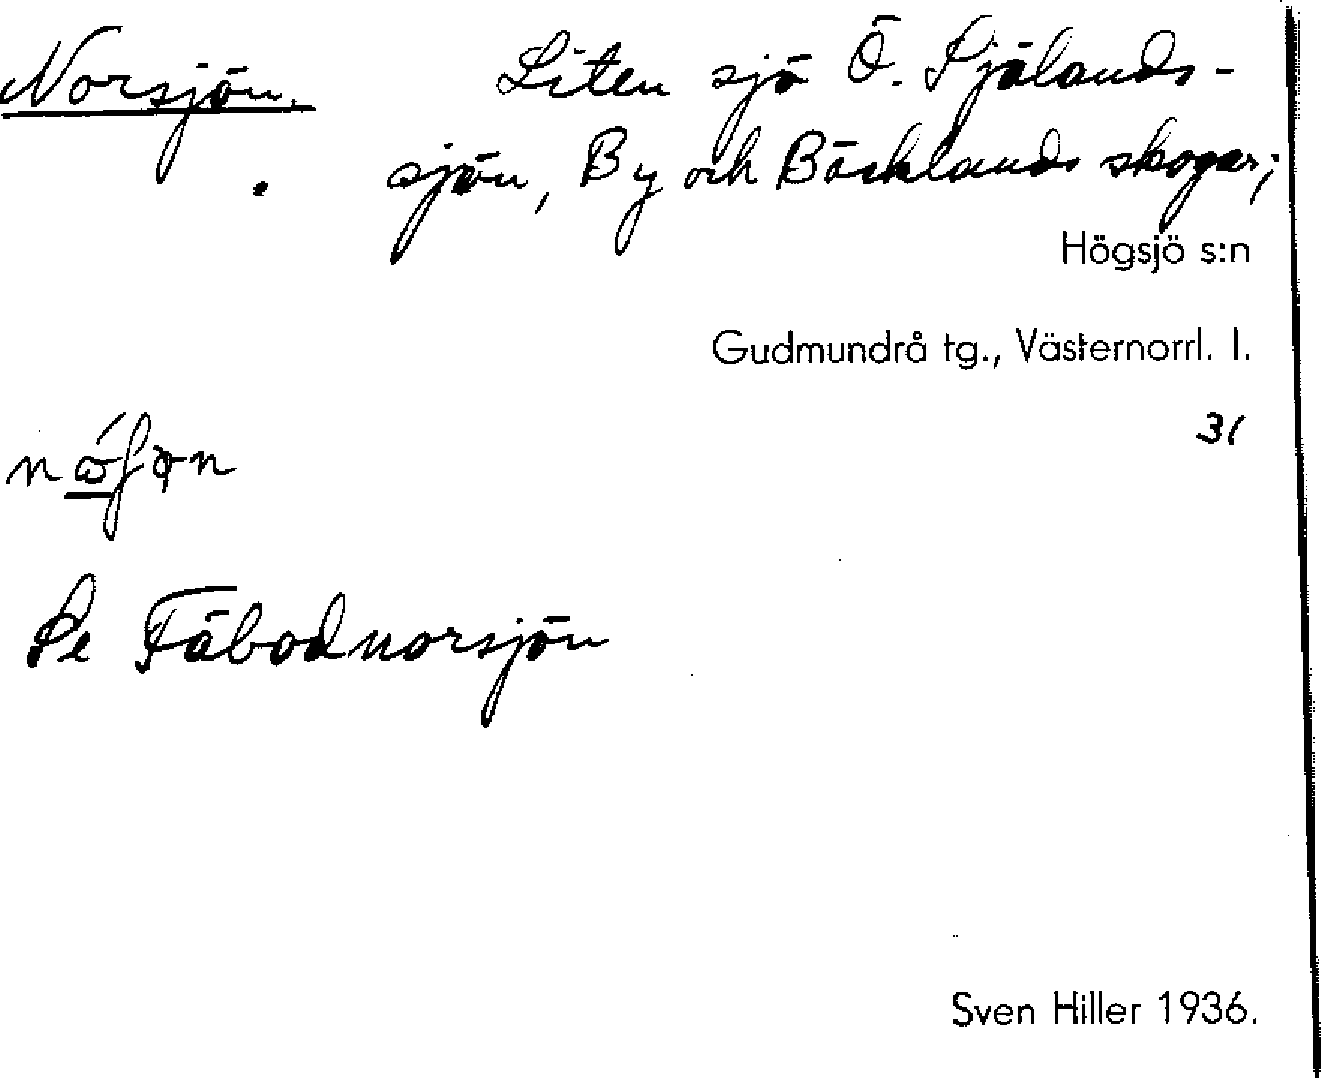 Norsjön. Liten sjö Ö. Själands-
sjön, By och Böcklands skogar;
Högsjö s:n
Gudmundrå tg., Västernorrl. l.
31
Se Fäbodnorsjön
Sven Hiller 1936.